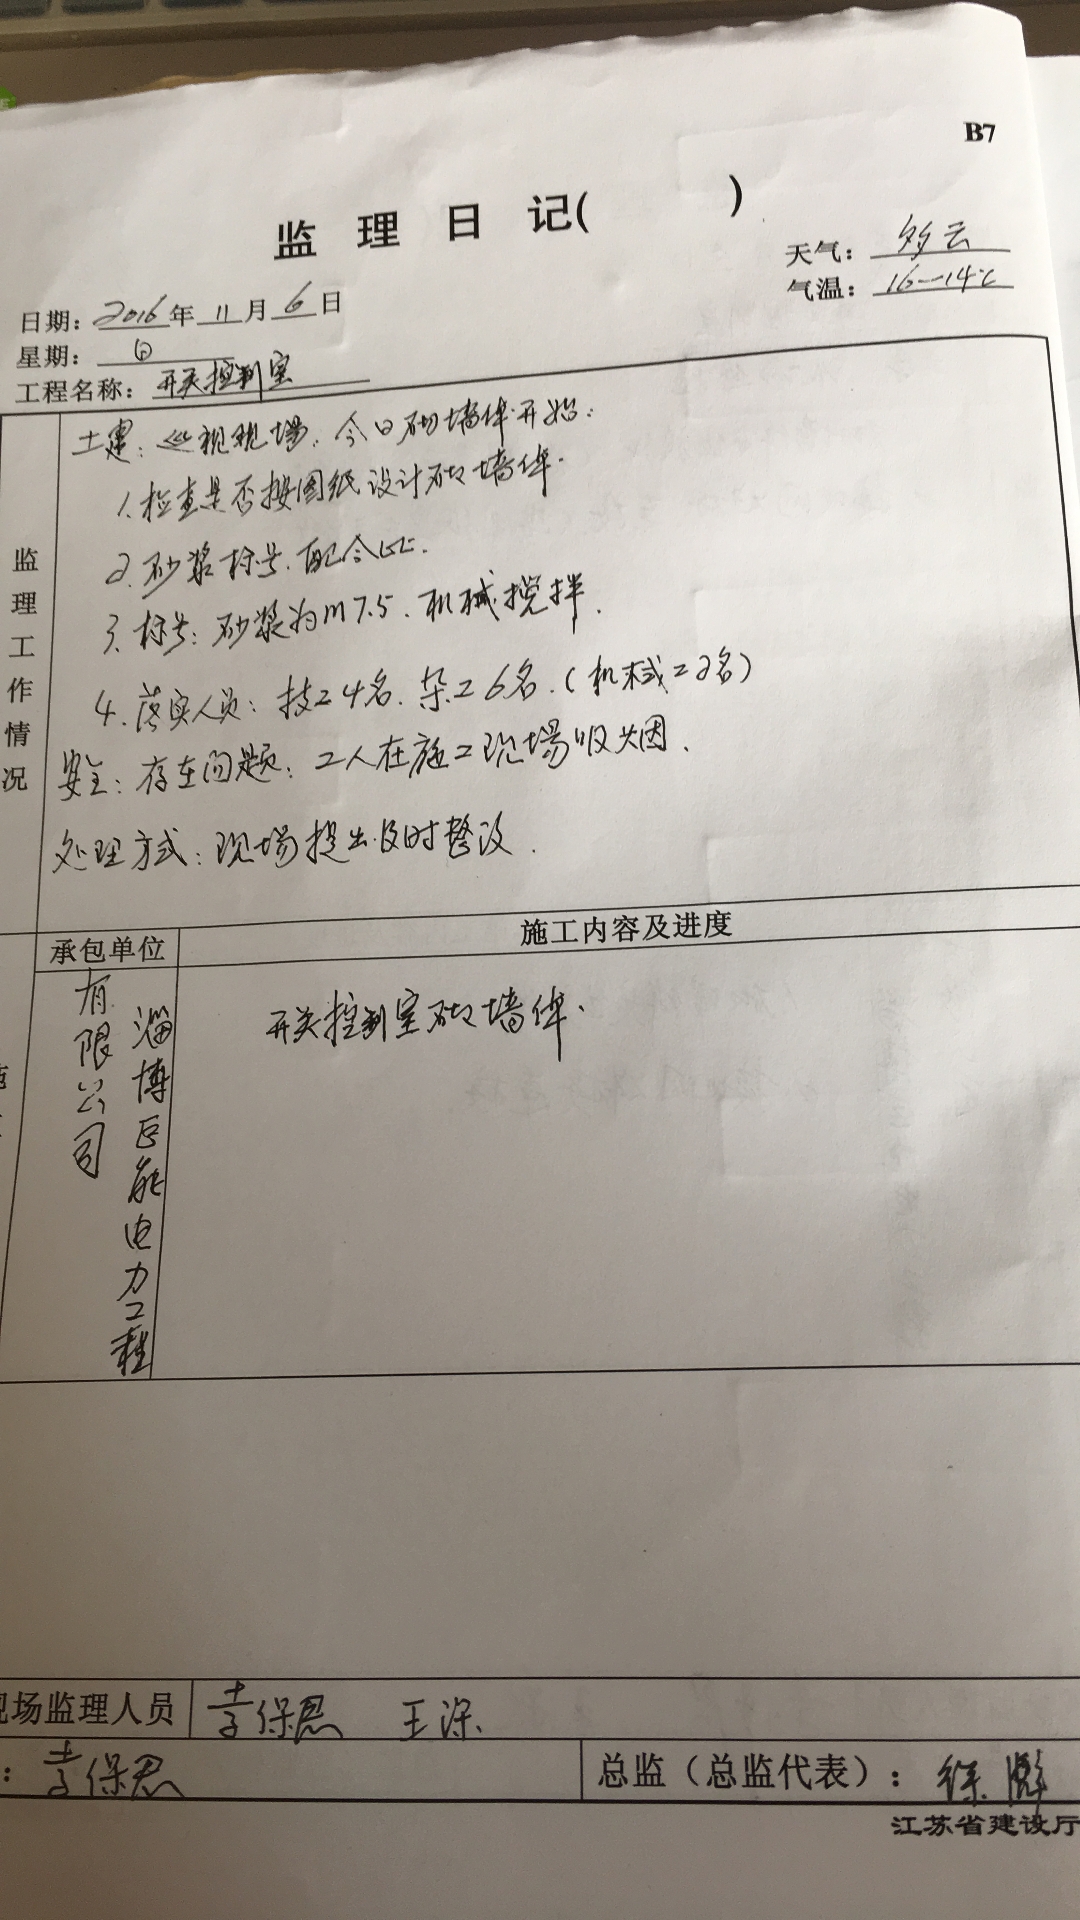 B7
监 理 日 记( )
天气: 多云
气温: 16—14℃
日期: 2016年11月6日
星期: 日
工程名称: 开关控制室
监理工作情况
土建: 巡视现场, 今日砌墙体开始:
1. 检查是否按图纸设计砌墙体.
2. 砂浆标号、配合比.
3. 标号: 砂浆为m7.5. 机械搅拌.
4. 落实人员: 技工4名. 杂工6名. (机械工2名)
安全: 存在问题: 工人在施工现场吸烟.
处理方式: 现场提出及时整改.
承包单位
施工内容及进度
淄博巨能电力工程
有限公司
开关控制室砌墙体.
现场监理人员
李保恩 王深
: 李保恩
总监（总监代表）: 徐
江苏省建设厅